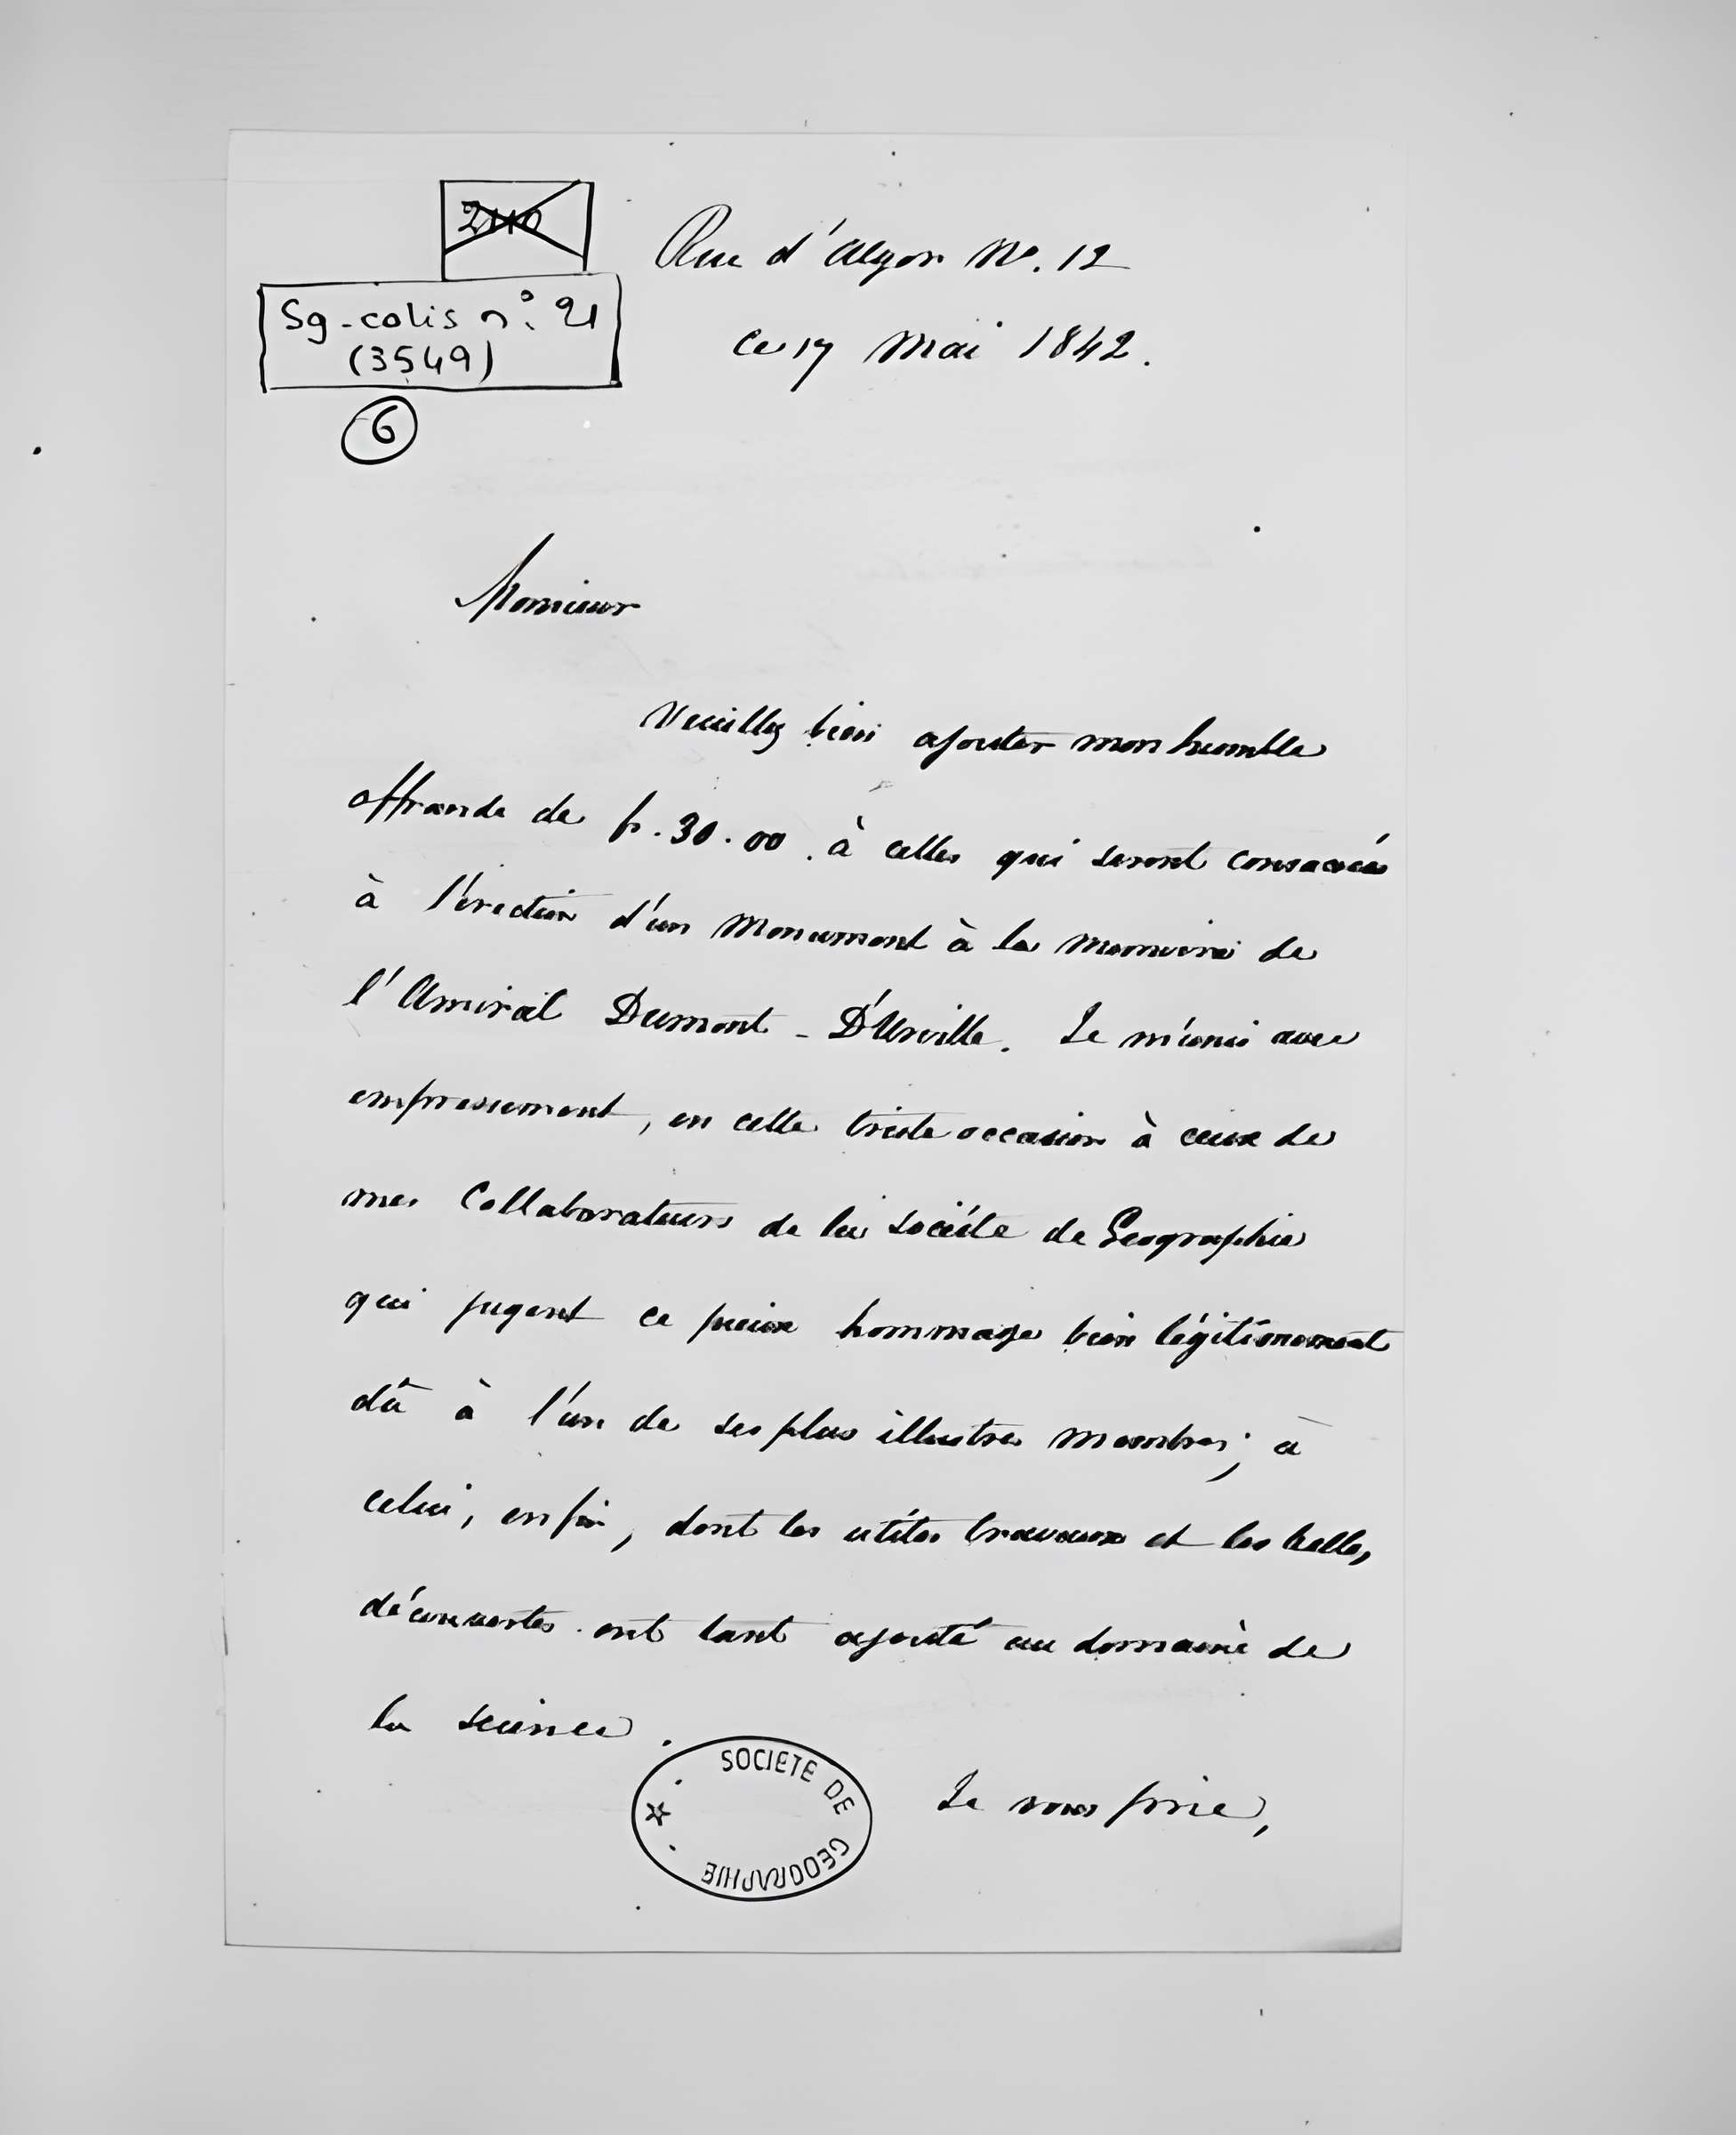 2110
Sg-colis n° 21
(3549)
6
Rue d'Alger No. 12
ce 17 Mai 1842.
Monsieur
Veuillez bien ajouter mon humble
offrande de fr. 30.00. à celles qui seront consacrées
à l'érection d'un Monument à la memoire de
l'Amiral Dumont-D'Urville. Je m'unis avec
empressement, en cette triste occasion à ceux de
mes Collaborateurs de la Sociéte de Geographie
qui jugent ce pieux hommage bien légitimement
dû à l'un de ses plus illustres membres; à
celui, enfin, dont les utiles travaux et les belles
découvertes ont tant ajouté au domaine de
la science.
Je vous prie,
SOCIETE DE GEOGRAPHIE